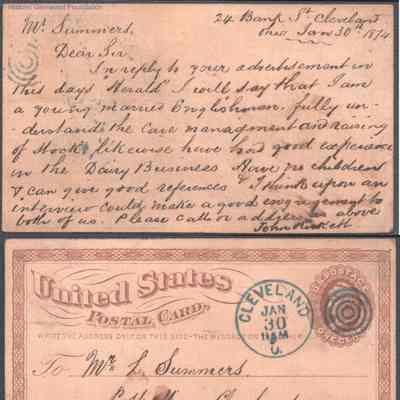 Historic Glenwood Foundation
24 Bank St Cleveland
Mr. Summers,
Ohio Jan 30th 1874
Dear Sir
In reply to your advertisement in
this days Herald I will say that I am
a young married Englishman. fully un-
derstands the Care management and raising
of Stock, likewise have had good experience
in the Dairy Business Have no children
& can give good references & I think upon an
interview could make a good engagement to
both of us. Please call or address as above
John
United States
POSTAL CARD.
WRITE THE ADDRESS ONLY ON THIS SIDE - THE MESSAGE ON THE OTHER
CLEVELAND
JAN
30
11AM
O.
U.S. POSTAGE
ONE CENT
To Mr. L. Summers